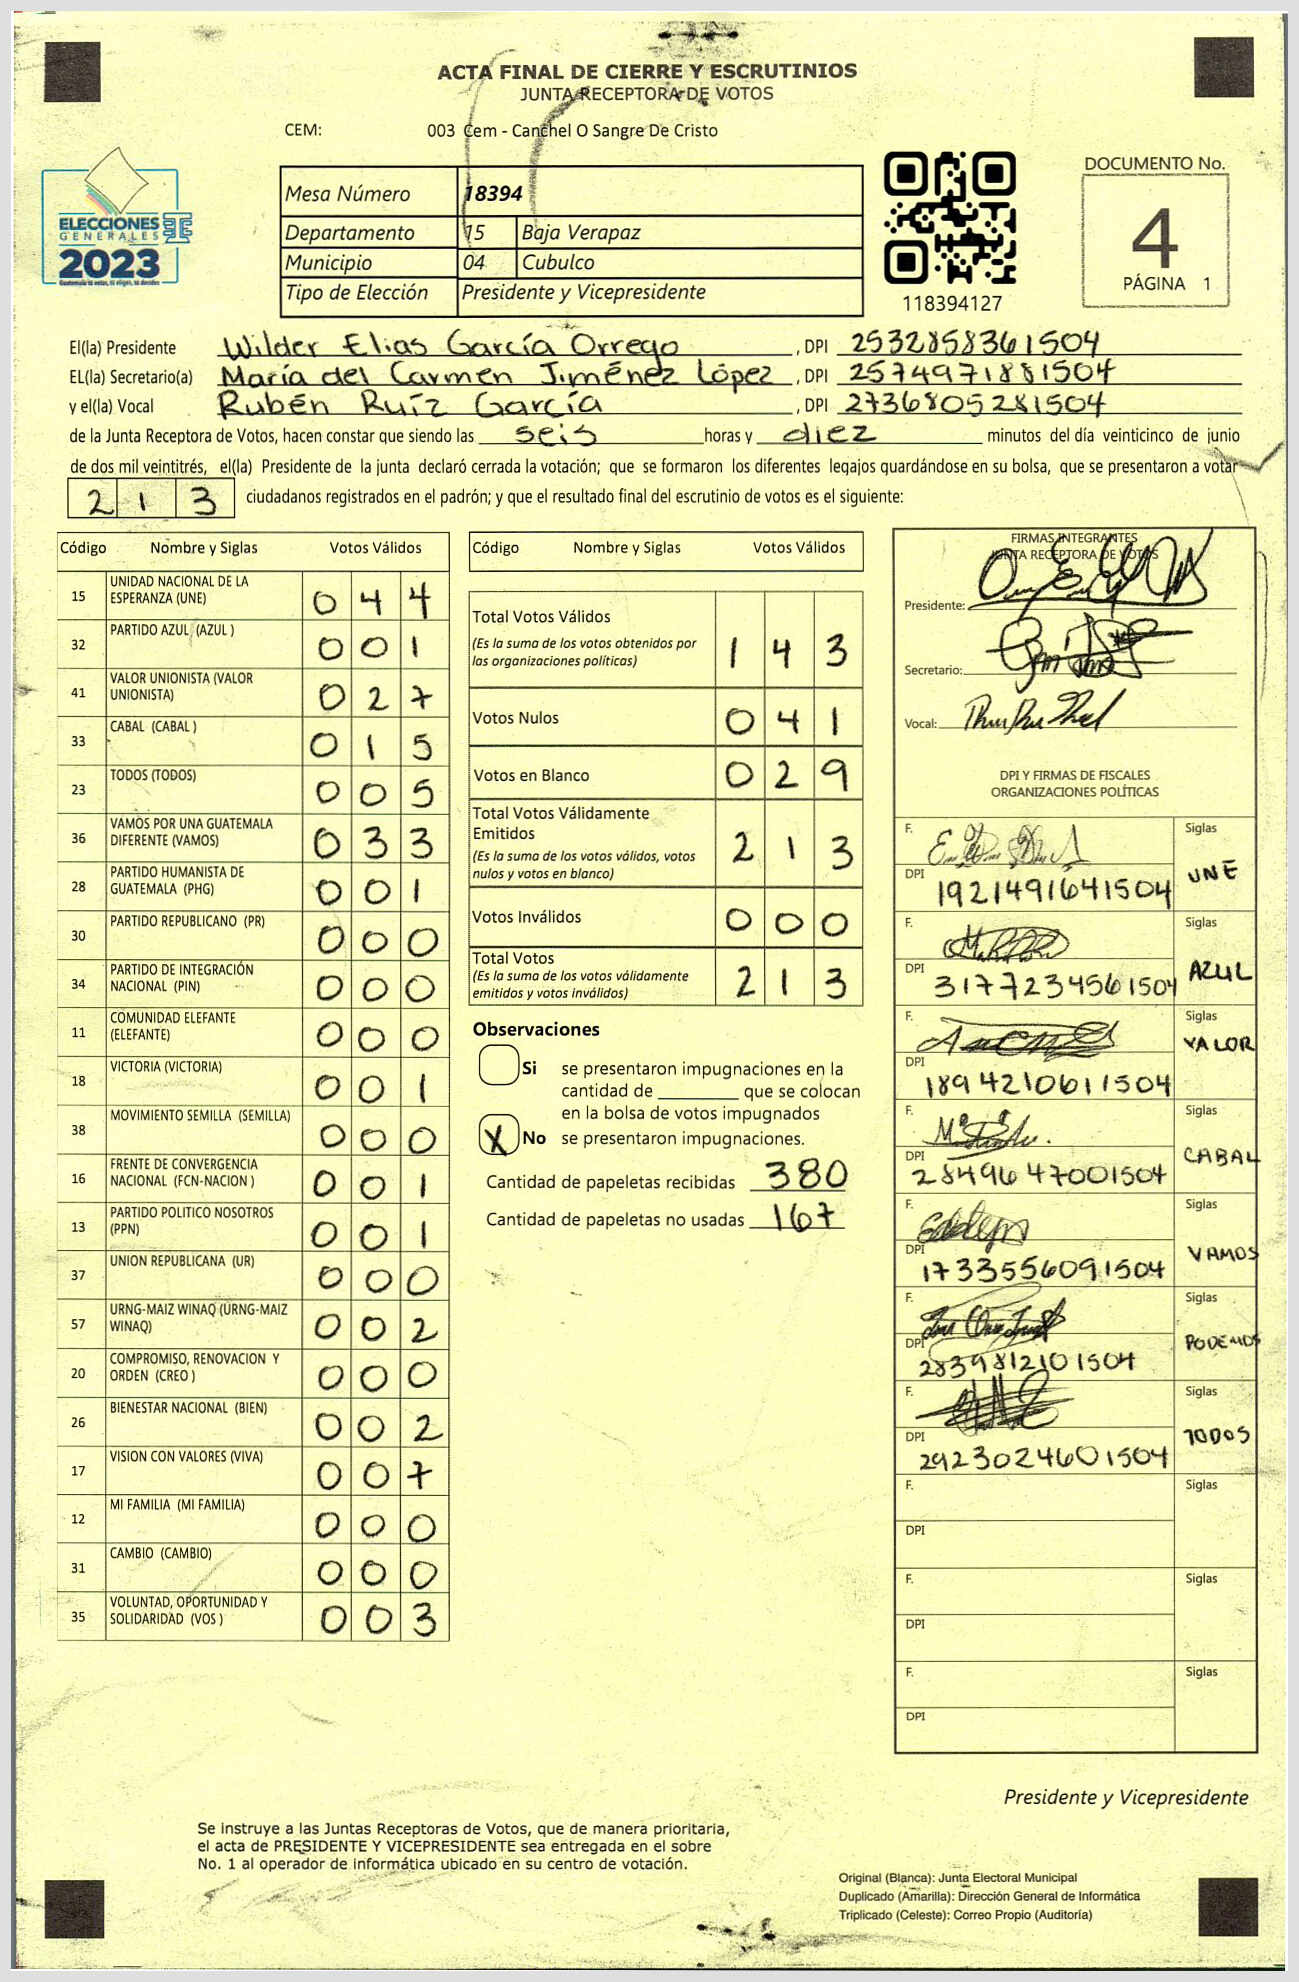 ACTA FINAL DE CIERRE Y ESCRUTINIOS
JUNTA RECEPTORA DE VOTOS
CEM: 003 Cem - Canchel O Sangre De Cristo
ELECCIONES
GENERALES
2023
Guatemala tú votas, tú eliges, tú decides
Mesa Número 18394
Departamento 15 Baja Verapaz
Municipio 04 Cubulco
Tipo de Elección Presidente y Vicepresidente
118394127
DOCUMENTO No.
4
PÁGINA 1
El(la) Presidente Wilder Elias García Orrego , DPI 2532858361504
EL(la) Secretario(a) María del Carmen Jiménez López , DPI 2574971881504
y el(la) Vocal Rubén Ruíz García , DPI 2736805281504
de la Junta Receptora de Votos, hacen constar que siendo las seis horas y diez minutos del día veinticinco de junio
de dos mil veintitrés, el(la) Presidente de la junta declaró cerrada la votación; que se formaron los diferentes legajos quardándose en su bolsa, que se presentaron a votar
213 ciudadanos registrados en el padrón; y que el resultado final del escrutinio de votos es el siguiente:
Código Nombre y Siglas Votos Válidos
15 UNIDAD NACIONAL DE LA ESPERANZA (UNE) 044
32 PARTIDO AZUL (AZUL ) 001
41 VALOR UNIONISTA (VALOR UNIONISTA) 027
33 CABAL (CABAL ) 015
23 TODOS (TODOS) 005
36 VAMOS POR UNA GUATEMALA DIFERENTE (VAMOS) 033
28 PARTIDO HUMANISTA DE GUATEMALA (PHG) 001
30 PARTIDO REPUBLICANO (PR) 000
34 PARTIDO DE INTEGRACIÓN NACIONAL (PIN) 000
11 COMUNIDAD ELEFANTE (ELEFANTE) 000
18 VICTORIA (VICTORIA) 001
38 MOVIMIENTO SEMILLA (SEMILLA) 000
16 FRENTE DE CONVERGENCIA NACIONAL (FCN-NACION ) 001
13 PARTIDO POLITICO NOSOTROS (PPN) 001
37 UNION REPUBLICANA (UR) 000
57 URNG-MAIZ WINAQ (URNG-MAIZ WINAQ) 002
20 COMPROMISO, RENOVACION Y ORDEN (CREO ) 000
26 BIENESTAR NACIONAL (BIEN) 002
17 VISION CON VALORES (VIVA) 007
12 MI FAMILIA (MI FAMILIA) 000
31 CAMBIO (CAMBIO) 000
35 VOLUNTAD, OPORTUNIDAD Y SOLIDARIDAD (VOS ) 003
Código Nombre y Siglas Votos Válidos
Total Votos Válidos 143
(Es la suma de los votos obtenidos por
las organizaciones políticas)
Votos Nulos 041
Votos en Blanco 029
Total Votos Válidamente
Emitidos 213
(Es la suma de los votos válidos, votos
nulos y votos en blanco)
Votos Inválidos 000
Total Votos 213
(Es la suma de los votos válidamente
emitidos y votos inválidos)
Observaciones
Si se presentaron impugnaciones en la
cantidad de ________ que se colocan
en la bolsa de votos impugnados
X No se presentaron impugnaciones.
Cantidad de papeletas recibidas 380
Cantidad de papeletas no usadas 167
FIRMAS INTEGRANTES
JUNTA RECEPTORA DE VOTOS
Presidente:
Secretario:
Vocal:
DPI Y FIRMAS DE FISCALES
ORGANIZACIONES POLÍTICAS
F. Siglas
DPI 1921491641504 UNE
F. Siglas
DPI 3177234561504 AZUL
F. Siglas
DPI 1894210611504 VALOR
F. Siglas
DPI 2849647001504 CABAL
F. Siglas
DPI 1733556091504 VAMOS
F. Siglas
DPI 2839812101504 PODEMOS
F. Siglas
DPI 2923024601504 TODOS
F. Siglas
DPI
F. Siglas
DPI
F. Siglas
DPI
Presidente y Vicepresidente
Se instruye a las Juntas Receptoras de Votos, que de manera prioritaria,
el acta de PRESIDENTE Y VICEPRESIDENTE sea entregada en el sobre
No. 1 al operador de informática ubicado en su centro de votación.
Original (Blanca): Junta Electoral Municipal
Duplicado (Amarilla): Dirección General de Informática
Triplicado (Celeste): Correo Propio (Auditoría)